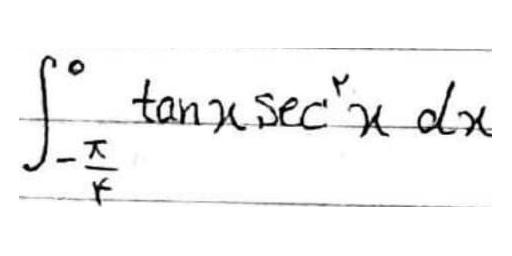 ∫_{-π/۴}^{۰} tan x sec^۲ x dx